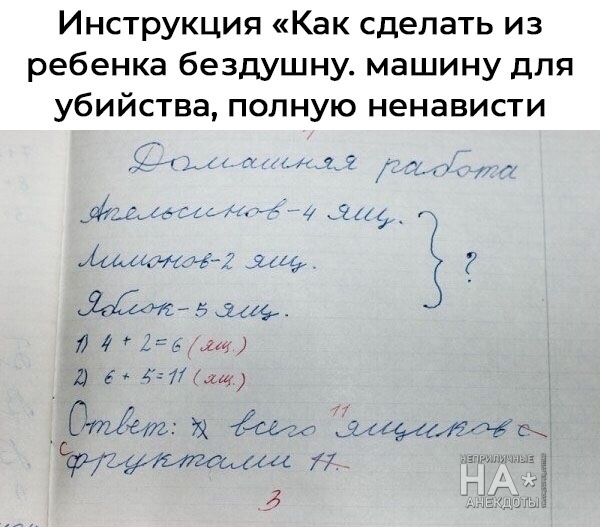 Инструкция «Как сделать из
ребенка бездушну. машину для
убийства, полную ненависти
Домашняя работа
Апельсинов-4 ящ.
Лимонов-2 ящ.
?
Яблок-5 ящ.
1) 4 + 2=6 (ящ.)
2) 6 + 5=11 (ящ.)
11
Ответ: всего ящиков с
с фруктами 11.
3
НЕПРИЛИЧНЫЕ
НА*
АНЕКДОТЫ